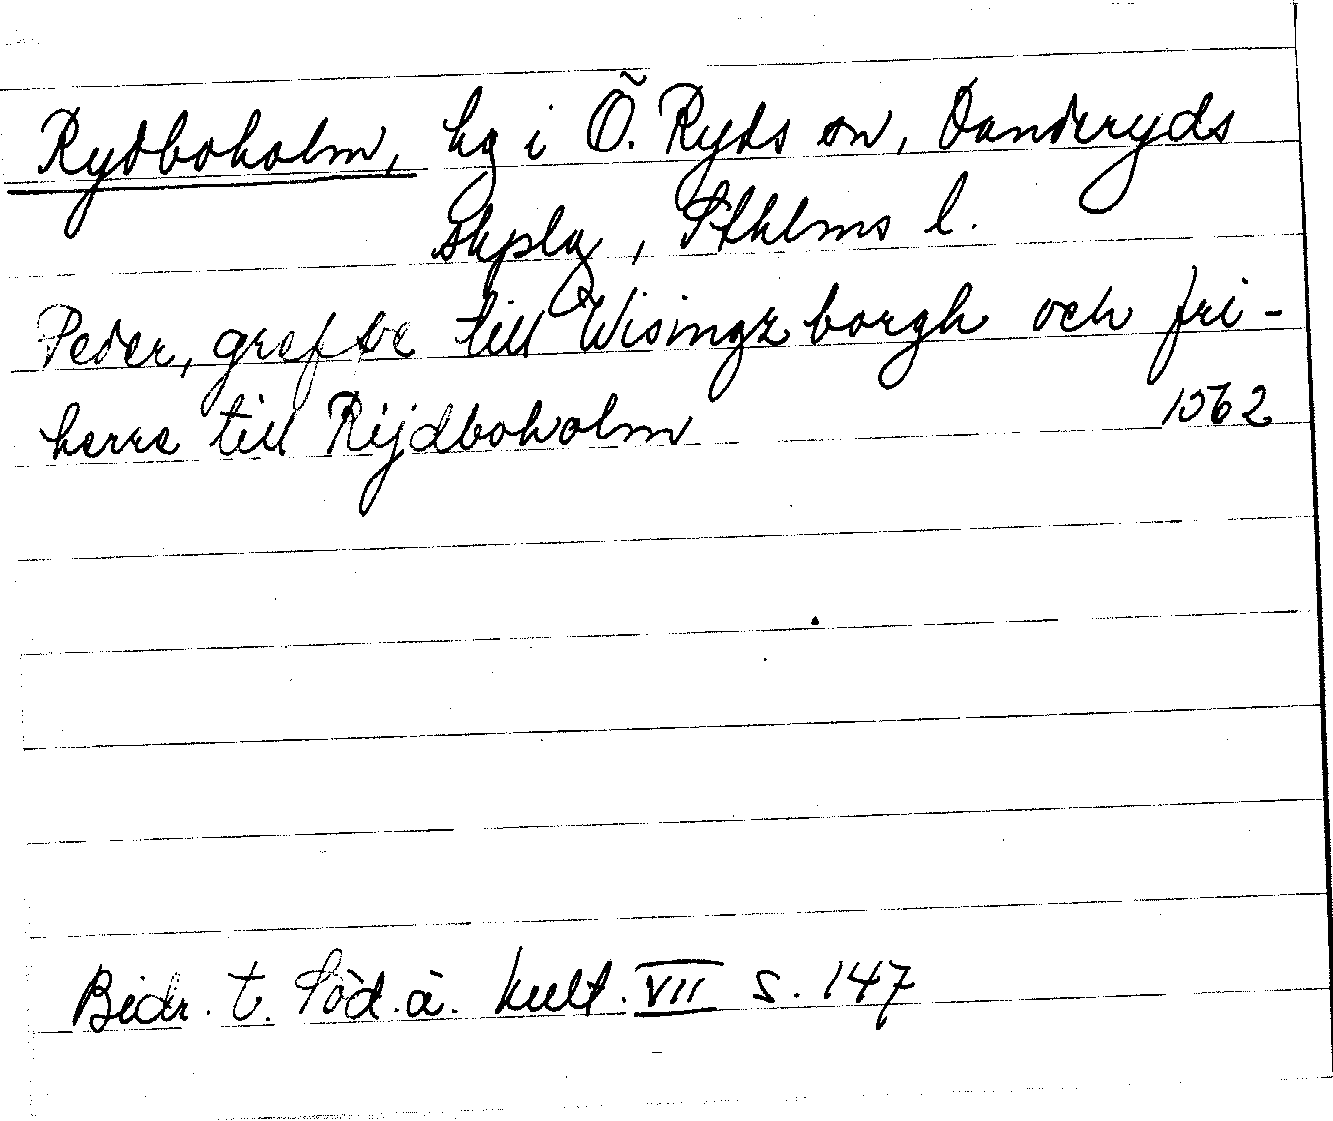 Rydboholm, hg i Ö. Ryds sn, Danderyds
skplg, Sthlms l.
Peder, greffve till Wisingzborgh och fri-
herre till Rijdboholm 1562
Bidr. t. Söd. ä. kult. VII s. 147